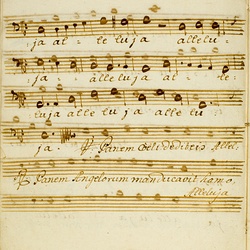 ja al- le luja allelu-
ja- alleluja al- le-
luja alle lu ja alle lu-
ja. V. Panem Cœli dedit eis Allel:
R. Panem Angelorum manducavit homo.
Alleluja